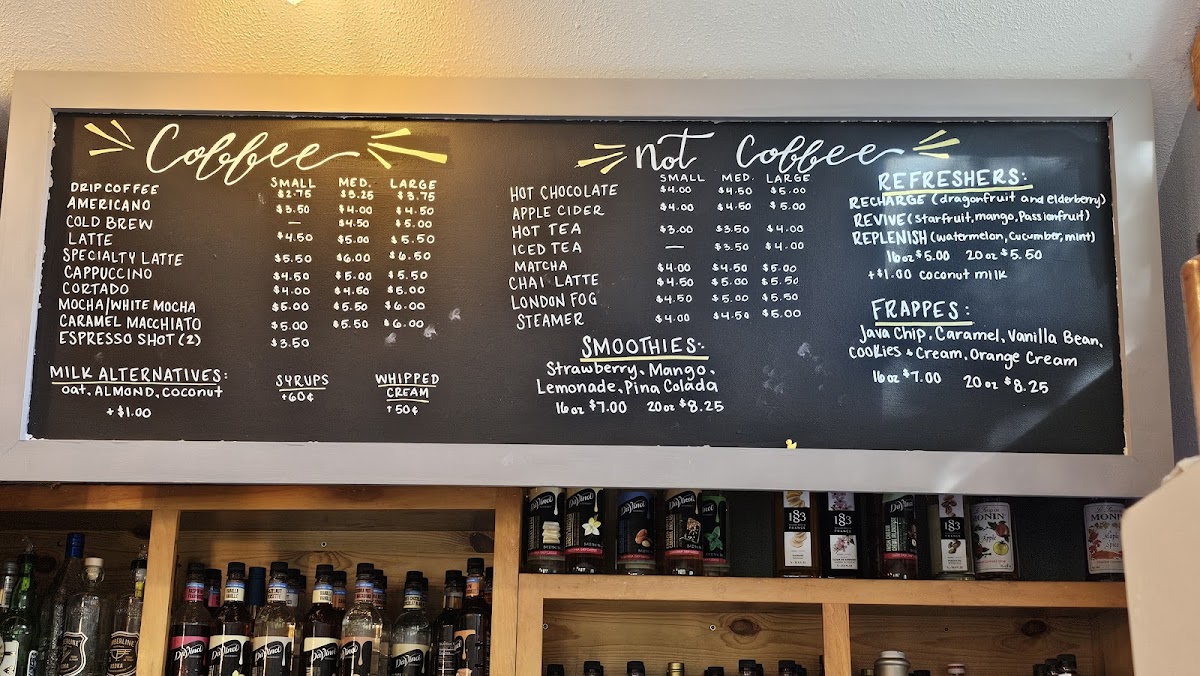 Coffee
SMALL MED. LARGE
DRIP COFFEE $2.75 $3.25 $3.75
AMERICANO $3.50 $4.00 $4.50
COLD BREW — $4.50 $5.00
LATTE $4.50 $5.00 $5.50
SPECIALTY LATTE $5.50 $6.00 $6.50
CAPPUCCINO $4.50 $5.00 $5.50
CORTADO $4.00 $4.50 $5.00
MOCHA/WHITE MOCHA $5.00 $5.50 $6.00
CARAMEL MACCHIATO $5.00 $5.50 $6.00
ESPRESSO SHOT (2) $3.50
MILK ALTERNATIVES:
oat, ALMOND, coconut
+$1.00
SYRUPS
+60¢
WHIPPED
CREAM
+50¢
not Coffee
SMALL MED. LARGE
HOT CHOCOLATE $4.00 $4.50 $5.00
APPLE CIDER $4.00 $4.50 $5.00
HOT TEA $3.00 $3.50 $4.00
ICED TEA — $3.50 $4.00
MATCHA $4.00 $4.50 $5.00
CHAI LATTE $4.50 $5.00 $5.50
LONDON FOG $4.50 $5.00 $5.50
STEAMER $4.00 $4.50 $5.00
SMOOTHIES:
Strawberry, Mango,
Lemonade, Pina Colada
16oz $7.00 20oz $8.25
REFRESHERS:
RECHARGE (dragonfruit and elderberry)
REVIVE (starfruit, mango, Passionfruit)
REPLENISH (watermelon, cucumber, mint)
16oz $5.00 20oz $5.50
+$1.00 coconut milk
FRAPPES:
Java Chip, Caramel, Vanilla Bean,
Cookies & Cream, Orange Cream
16oz $7.00 20oz $8.25
DaVinci
DaVinci
DaVinci
DaVinci
DaVinci
1883
1883
DaVinci
1883
MONIN
MONIN
DaVinci
DaVinci
DaVinci
DaVinci
DaVinci
DaVinci